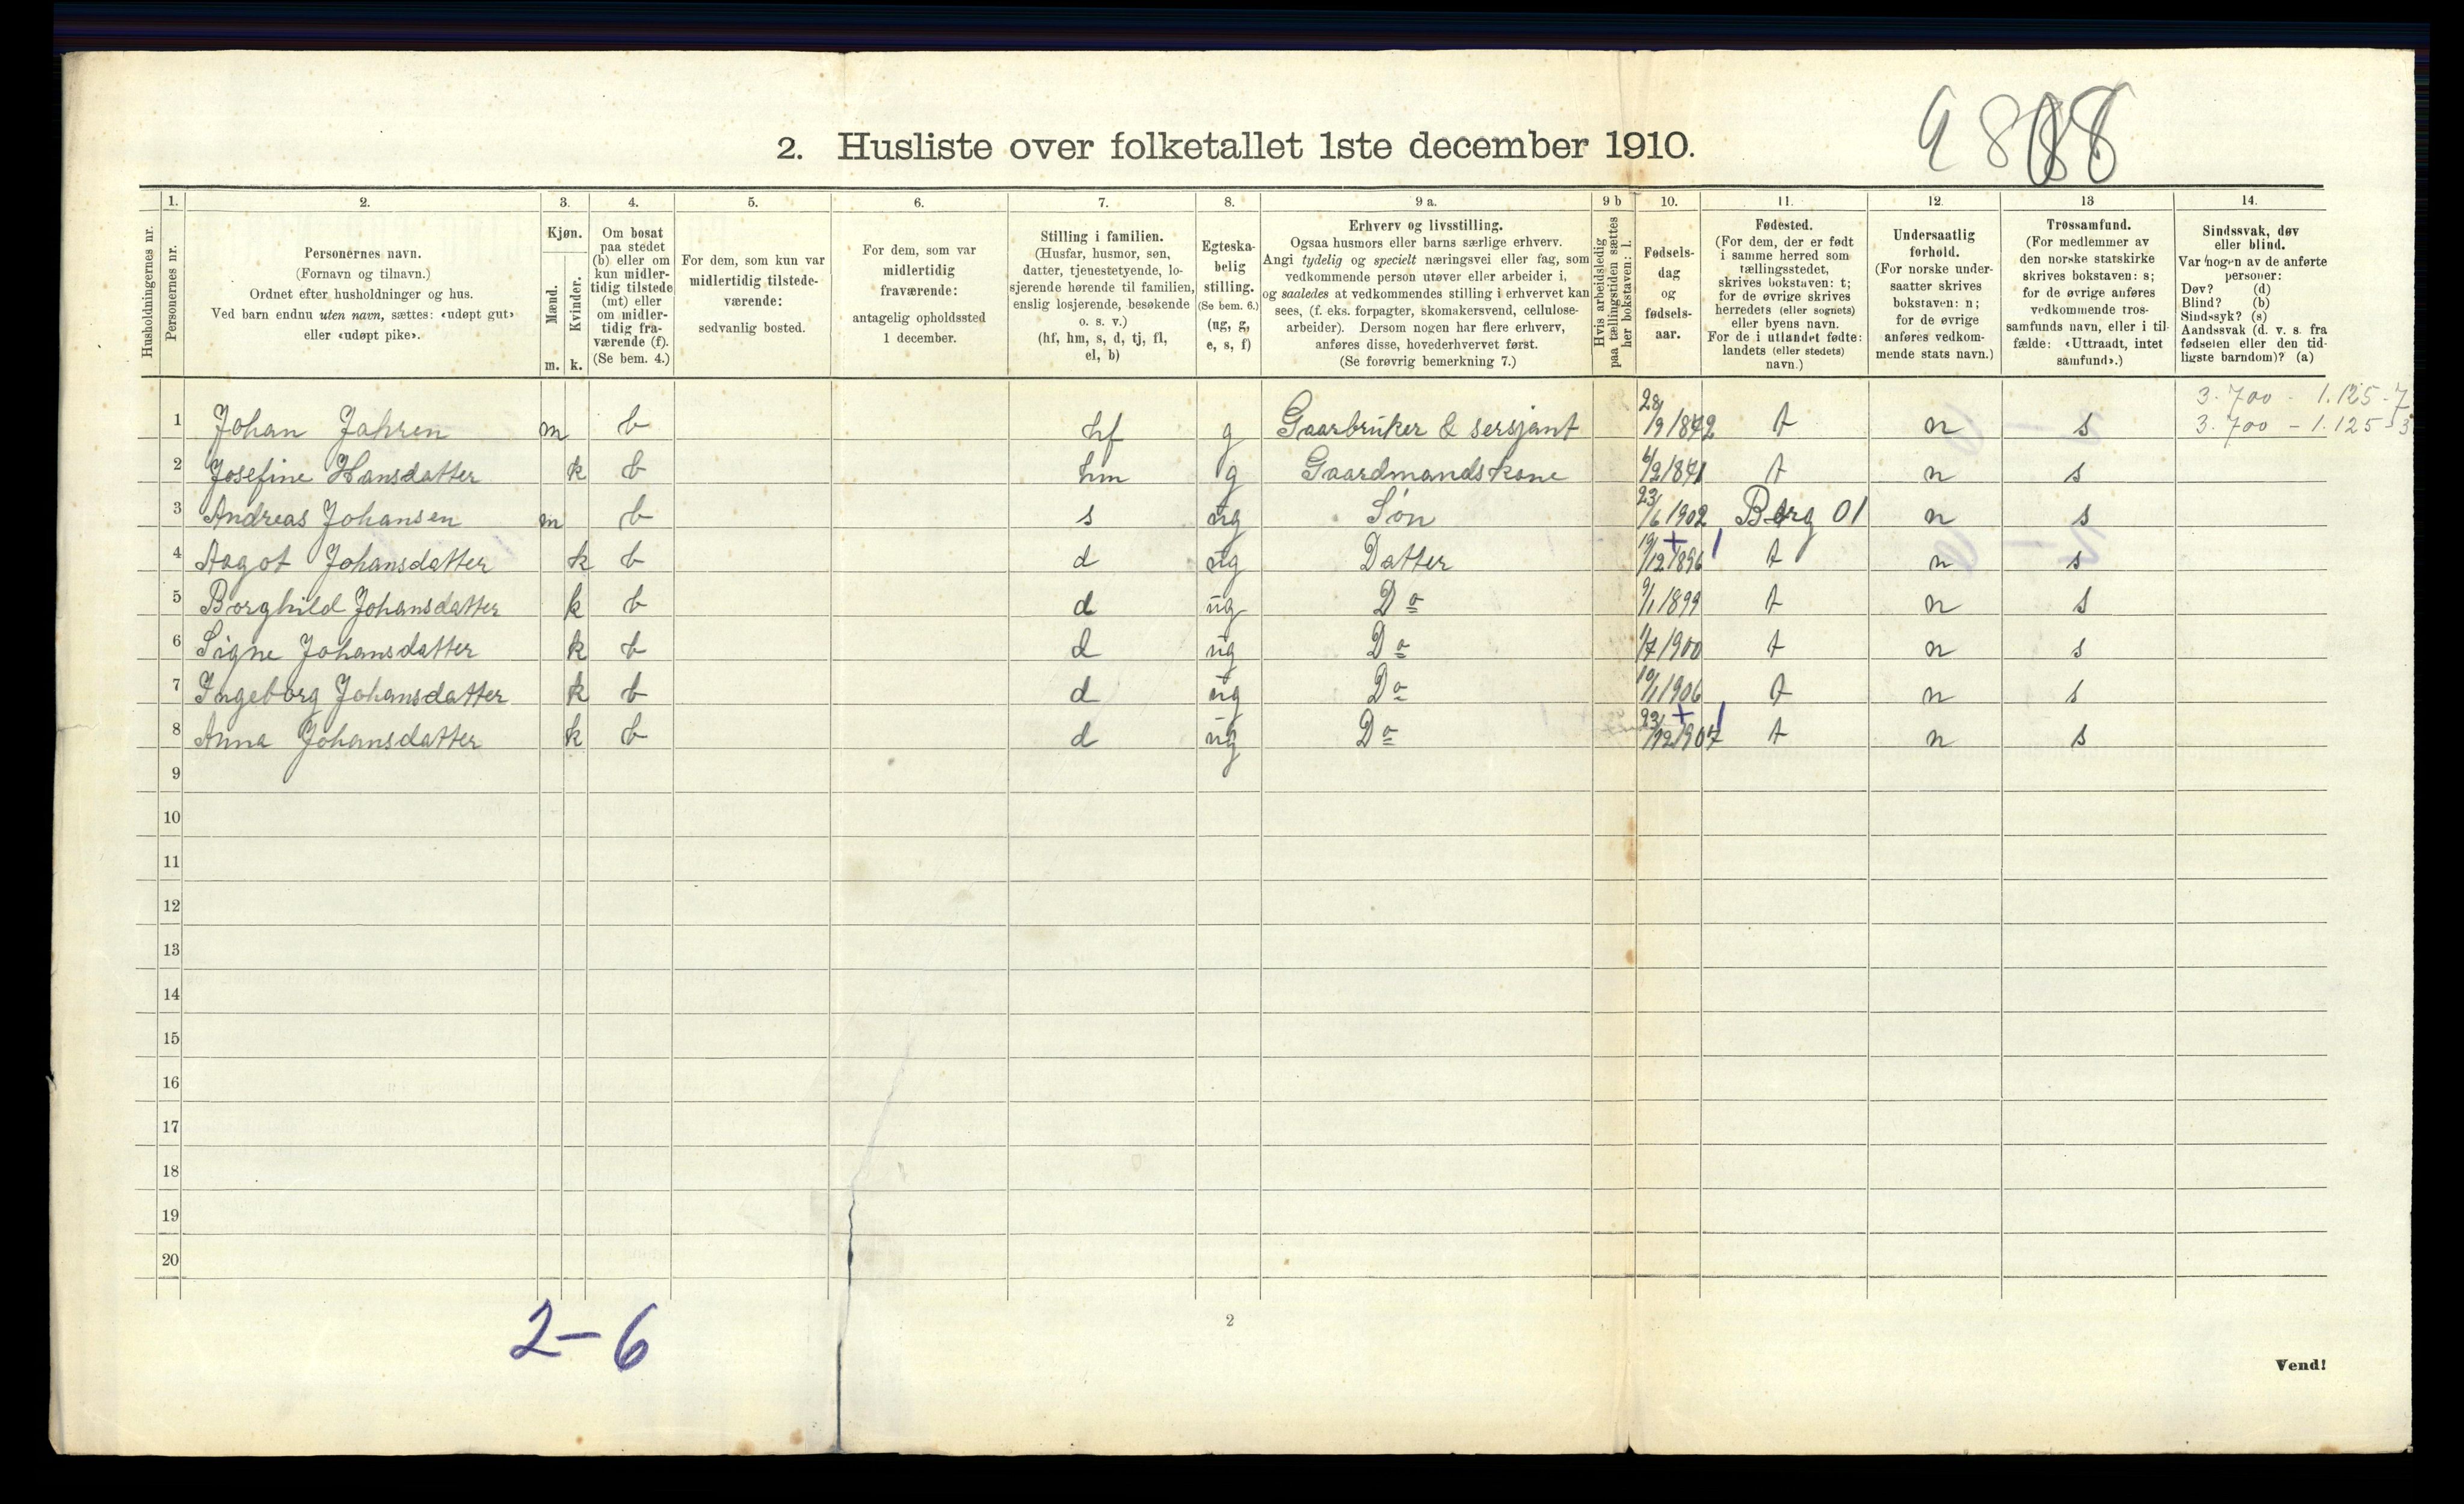 9888
2. Husliste over folketallet 1ste december 1910.
1. 2. 3. 4. 5. 6. 7. 8. 9 a. 9 b 10. 11. 12. 13 14.
Husholdningernes nr.
Personernes nr.
Personernes navn.
(Fornavn og tilnavn.)
Ordnet efter husholdninger og hus.
Ved barn endnu uten navn, sættes: «udøpt gut»
eller «udøpt pike».
Kjøn.
Mænd.
Kvinder.
m. k.
Om bosat
paa stedet
(b) eller om
kun midler-
tidig tilstede
(mt) eller
om midler-
tidig fra-
værende (f).
(Se bem. 4.)
For dem, som kun var
midlertidig tilstede-
værende:
sedvanlig bosted.
For dem, som var
midlertidig
fraværende:
antagelig opholdssted
1 december.
Stilling i familien.
(Husfar, husmor, søn,
datter, tjenestetyende, lo-
sjerende hørende til familien,
enslig losjerende, besøkende
o. s. v.)
(hf, hm, s, d, tj, fl,
el, b)
Egteska-
belig
stilling.
(Se bem. 6.)
(ug, g,
e, s, f)
Erhverv og livsstilling.
Ogsaa husmors eller barns særlige erhverv.
Angi tydelig og specielt næringsvei eller fag, som
vedkommende person utøver eller arbeider i,
og saaledes at vedkommendes stilling i erhvervet kan
sees, (f. eks. forpagter, skomakersvend, cellulose-
arbeider). Dersom nogen har flere erhverv,
anføres disse, hovederhvervet først.
(Se forøvrig bemerkning 7.)
Hvis arbeidsledig
paa tællingstiden sættes
her bokstaven: l.
Fødsels-
dag
og
fødsels-
aar.
Fødested.
(For dem, der er født
i samme herred som
tællingsstedet,
skrives bokstaven: t;
for de øvrige skrives
herredets (eller sognets)
eller byens navn.
For de i utlandet fødte:
landets (eller stedets)
navn.)
Undersaatlig
forhold.
(For norske under-
saatter skrives
bokstaven: n;
for de øvrige
anføres vedkom-
mende stats navn.)
Trossamfund.
(For medlemmer av
den norske statskirke
skrives bokstaven: s;
for de øvrige anføres
vedkommende tros-
samfunds navn, eller i til-
fælde: «Uttraadt, intet
samfund».)
Sindssvak, døv
eller blind.
Var nogen av de anførte
personer:
Døv? (d)
Blind? (b)
Sindssyk? (s)
Aandssvak (d. v. s. fra
fødselen eller den tid-
ligste barndom)? (a)
3.700 - 1.125-7
3.700 - 1.125-3
1 Johan Jahren m b hf g Gaarbruker & sersjant 28/9 1842 t n s
2 Josefine Hansdatter k b hm g Gaardmandskone 6/2 1871 t n s
3 Andreas Johansen m b s ug Søn 23/6 1902 Borg 01 n s
4 Aagot Johansdatter k b d ug Datter 19/12 1896 t n s
5 Borghild Johansdatter k b d ug Do 9/1 1899 t n s
6 Signe Johansdatter k b d ug Do 1/7 1900 t n s
7 Ingeborg Johansdatter k b d ug Do 10/1 1906 t n s
8 Anna Johansdatter k b d ug Do 23/12 1907 t n s
9
10
11
12
13
14
15
16
17
18
19
20
2-6
2
Vend!